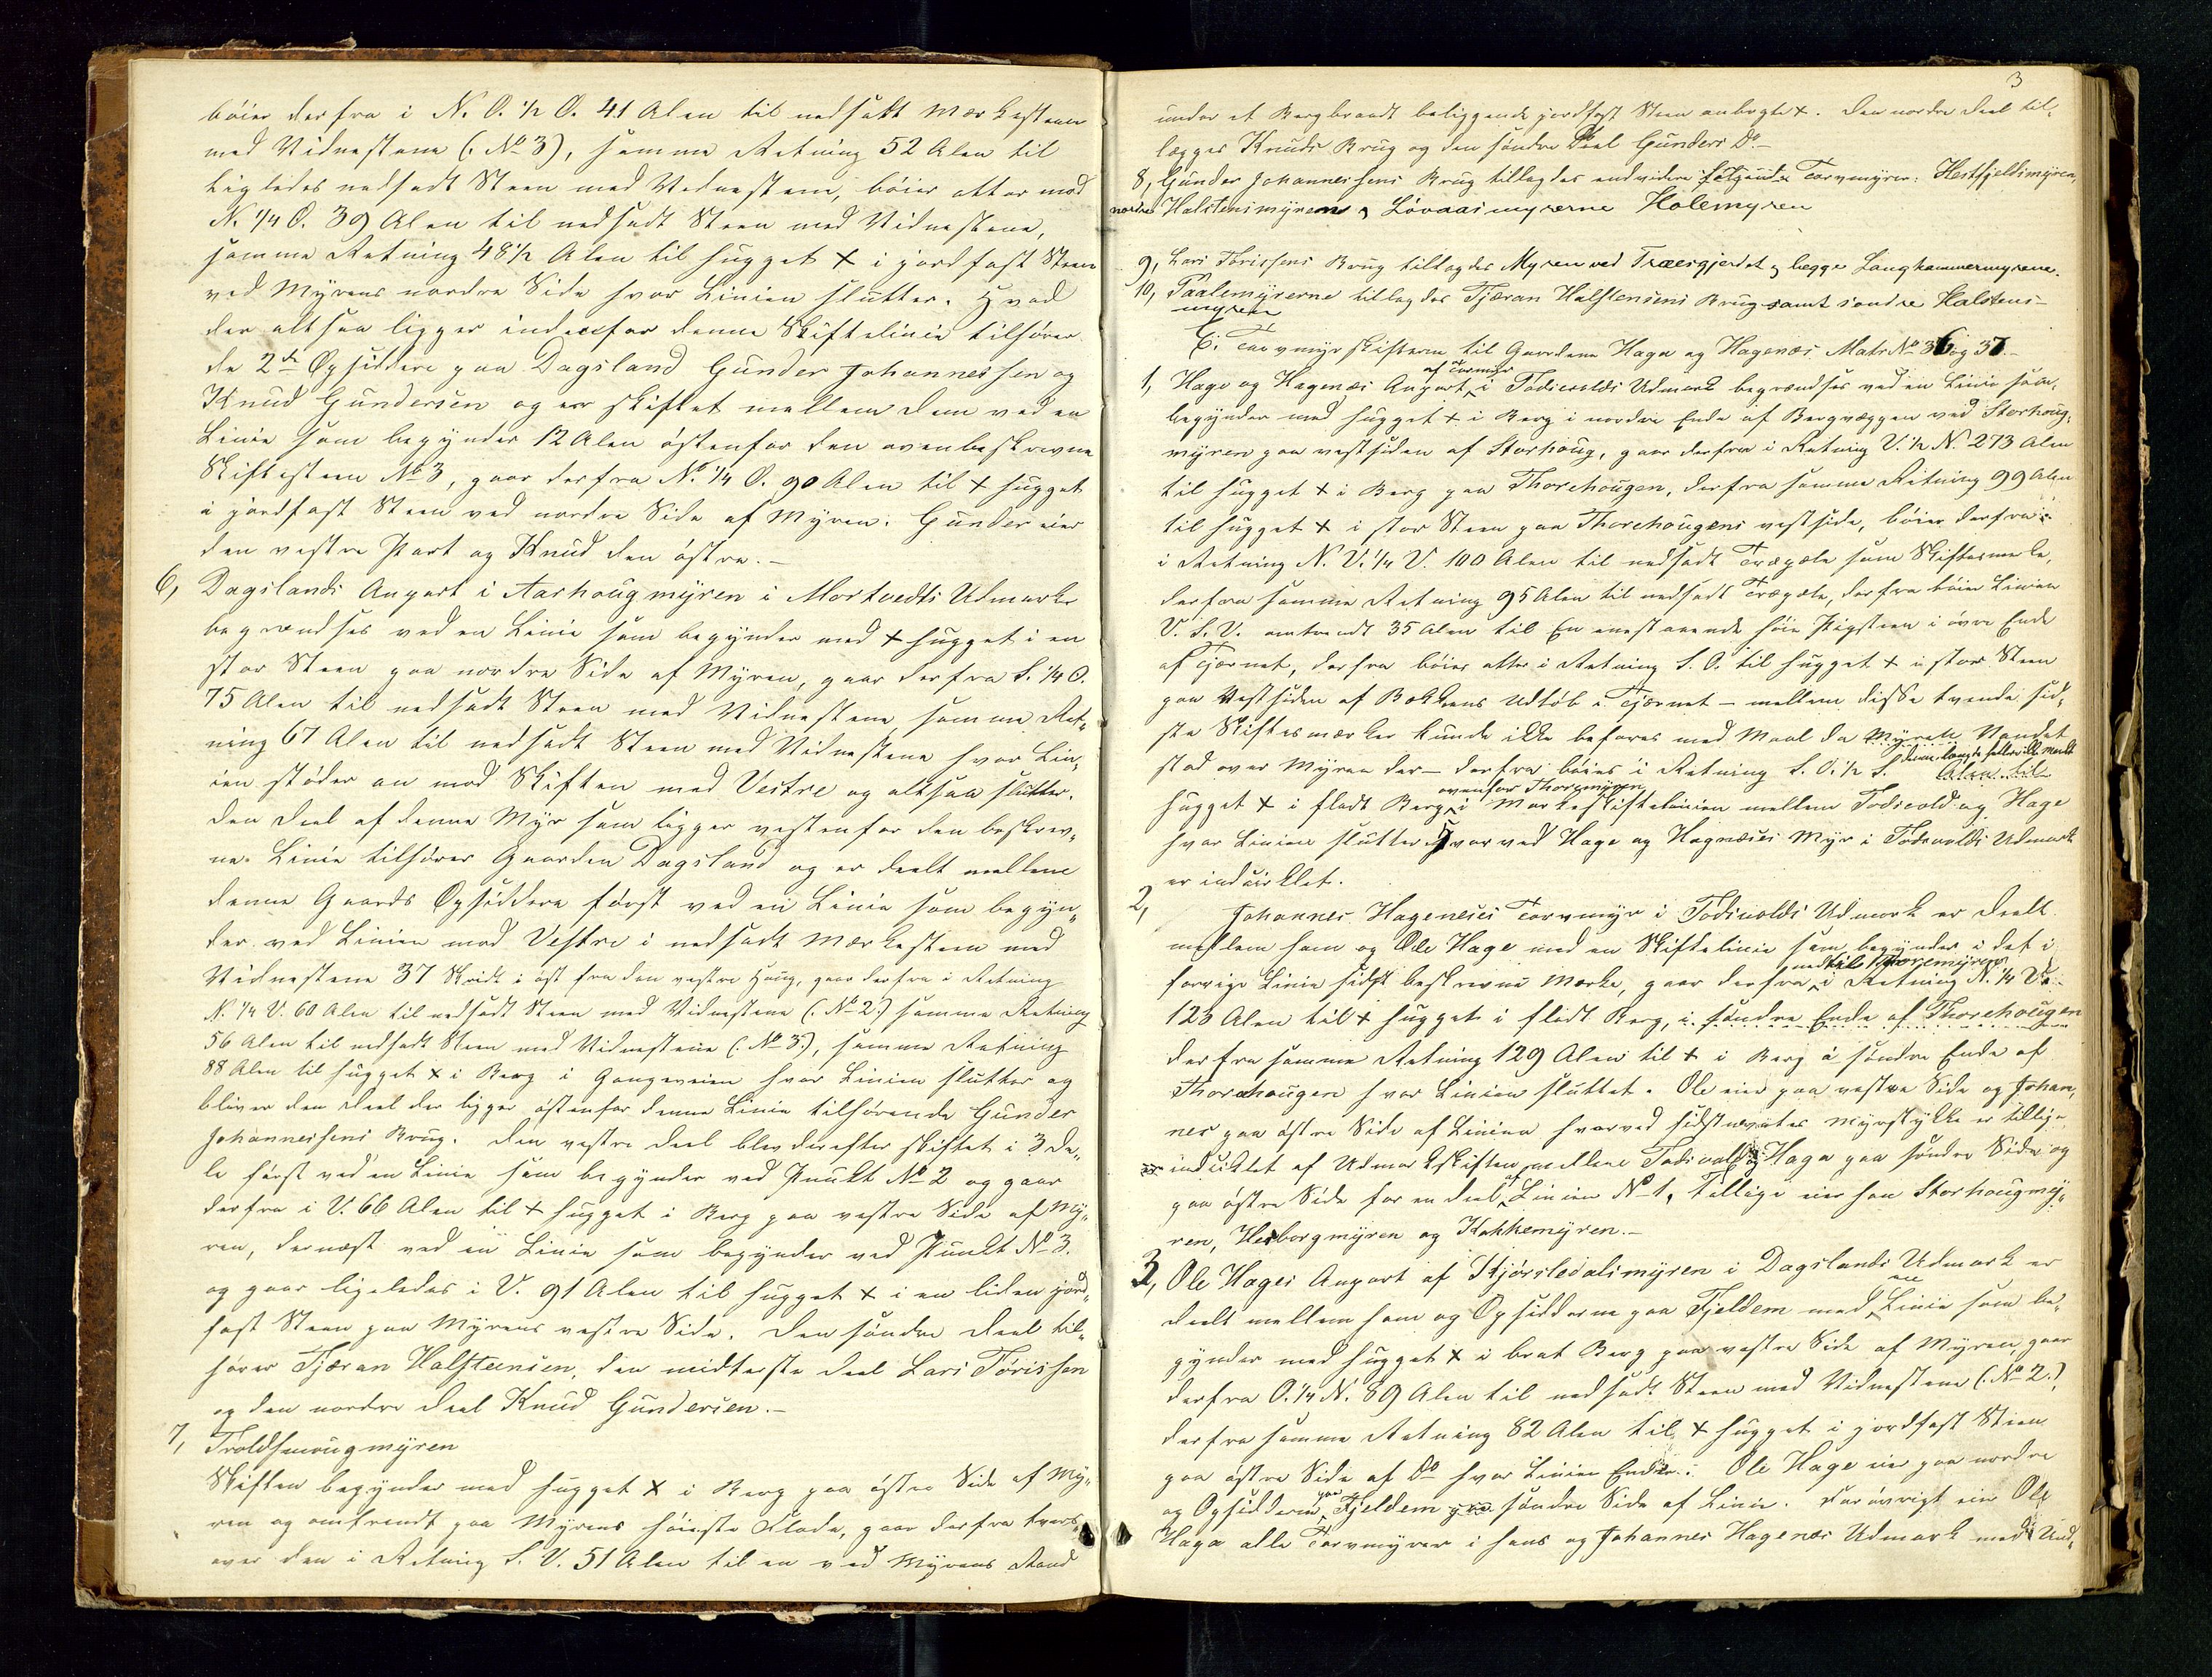 bøier derfra i N. O. 1/2 O. 41 Alen til nedsatt Mærkesteen
med Vidnestene (: No 3), samme Retning 52 Alen til
ligeledes nedsadt Steen med Vidnestene, bøier atter mod
N. 1/4 O. 39 Alen til nedsadt Steen med Vidnestene,
samme Retning 48 1/2 Alen til hugget X i jordfast Steen
ved Myrens nordre Side hvor Linien slutter. Hvad
der altsaa ligger indenfor denne Skiftelinie tilhører
de 2de Opsiddere paa Dagsland Gunder Johannessen og
Knud Gundersen og er skiftet mellem dem ved en
Linie som begynder 12 Alen østenfor den ovenbeskrevne
Skiftesteen No 3, gaar derfra N. 1/4 O. 90 Alen til X hugget
i jordfast Steen ved nordre Side af Myren. Gunder eier
den vestre Part og Knud den østre.-
6, Dagslands Anpart i Aarhougmyren i Mortvedts Udmark
begrændses ved en Linie som begynder med X hugget i en
stor Steen paa nordre Side af Myren, gaar derfra S. 1/4 O.
75 Alen til nedsadt Steen med Vidnestene samme Ret-
ning 67 Alen til nedsadt Steen med Vidnestene hvor Lin-
ien støder an mod Skiften med Vestre og altsaa slutter.
Den Deel af denne Myr som ligger vestenfor den beskrev-
ne Linie tilhører Gaarden Dagsland og er deelt mellem
denne Gaards Opsiddere først ved en Linie som begyn-
der ved Linien mod Vestre i nedsadt Mærkesteen med
Vidnestene 37 Skridt i øst fra den vestre Houg, gaar derfra i Retning
N. 1/4 V. 60 Alen til nedsadt Steen med Vidnestene (: No 2:) samme Retning
56 Alen til nedsadt Steen med Vidnestene (: No 3:), samme Retning
88 Alen til hugget X i Berg i Gangeveien hvor Linien slutter og
bliver den Deel der ligger østenfor denne Linie tilhørende Gunder
Johannessens Brug. Den vestre Deel blev derefter skiftet i 3 De-
le først ved en Linie som begynder ved Punkt No 2 og gaar
derfra i V. 66 Alen til X hugget i Berg paa vestre Side af My-
ren, dernæst ved en Linie som begynder ved Punkt No 3.
og gaar ligeledes i V. 91 Alen til hugget X i en liden jord-
fast Steen paa Myrens vestre Side. Den søndre Deel til-
hører Tjæran Halsteensen, den midterste Deel Lars Tørissen
og den nordre Deel Knud Gundersen.-
7, Troldhmougmyren
Skiften begynder med hugget X i Berg paa østre Side af My-
ren og omtrendt paa Myrens høieste Flade, gaar derfra tvers
over den i Retning S. V. 51 Alen til en ved Myrens Rand
3
under et Bergbrandt beliggende jordfast Steen anbragte X. Den nordre Deel til-
lægges Knuds Brug og den søndre Deel Gunders Do-
8, Gunder Johannessens Brug tillagdes endvidere følgende Torvmyrer: Hestfjeldsmyren,
nordre Halstensmyren, Løvaasmyrerne Holemyren
9, Lars Tørissens Brug tillagdes Myren ved Træesgjerdet, begge Langhammermyrene.
10, Paalemyrerne tillagdes Tjæran Halstensens Brug samt søndre Halstens-
myren
C: Torvmyrskiftern til Gaardene Haga og Hagenæs. Matr No 36 og 37.-
1, Hage og Hagenæs Anpart af Torvmyr i Todsvolds Udmark begrændses ved en Linie som
begynder med hugget X i Berg i nordre Ende af Bergvæggen ved Storhoug-
myren paa vestsiden af Storhoug, gaar derfra i Retning V. 1/2 N. 273 Alen
til hugget X i Berg paa Thorehougen, derfra samme Retning 99 Alen
til hugget X i stor Steen paa Thorehougens vestside, bøier derfra
i Retning N. V. 1/4 V. 100 Alen til nedsadt Træpæle som Skiftesmerke,
derfra samme Retning 95 Alen til nedsadt Træpæle, derfra bøier Linien
V. S. V. omtrendt 35 Alen til En enestaaende høie Pigsteen i øvre Ende
af Tjernet, derfra bøies atter i Retning S. O. til hugget X i stor Steen
paa Vestsiden af Bækkens Udløb i Tjernet - mellem disse tvende sid-
ste Skiftesmærker kunde ikke befares med Maal da Myren Vandet
stod over Myren der - derfra bøies i Retning S. O. 1/2 S. Alen til
hugget X i fladt Berg ovenfor Thoremyren i Markeskiftelinien mellem Todsvold og Hage
hvor Linien slutter hvorved Hage og Hagenæses Myr i Todsvolds Udmark
er indcirklet.
2, Johannes Hagenæses Torvmyr i Todsvolds Udmark er deelt
mellem ham og Ole Hage med en Skiftelinie som begynder i det i
forrige Linie sidst beskrevne Mærke, gaar derfra ned til Thoremyren i Retning N. 1/4 V.
123 Alen til X hugget i fladt Berg, i søndre Ende af Thorehougen
derfra samme Retning 129 Alen til X i Berg i søndre Ende af
Thorehougen hvor Linien sluttet. Ole eier paa vestre Side og Johan-
nes paa østre Side af Linien hvorved sidstnævntes Myrstykke er tillige
indciklet af Udmarkskiften mellem Todsvold og Haga paa søndre Side og
paa østre Side for en deel af Linien No 1, Tillige eier han Storhougmy-
ren, Herborgmyren og Kokkemyren.-
3, Ole Hages Anpart af Kjørsledalsmyren i Dagslands Udmark er
deelt mellem ham og Opsidderne paa Fjeldem med en Linie som be-
gynder med hugget X i brat Berg paa vestre Side af Myren, gaar
derfra O. 1/4 N. 89 Alen til nedsadt Steen med Vidnestene (: No 2:),
derfra samme Retning 82 Alen til X hugget i jordfast Steen
paa østre Side af Do hvor Linien Ender. Ole Hage eier paa nordre
og Opsidderne paa Fjeldem paa søndre Side af Linie. Forøvrigt eier Ole
Haga alle Torvmyrer i hans og Johannes Hagenæs Udmark med Und-